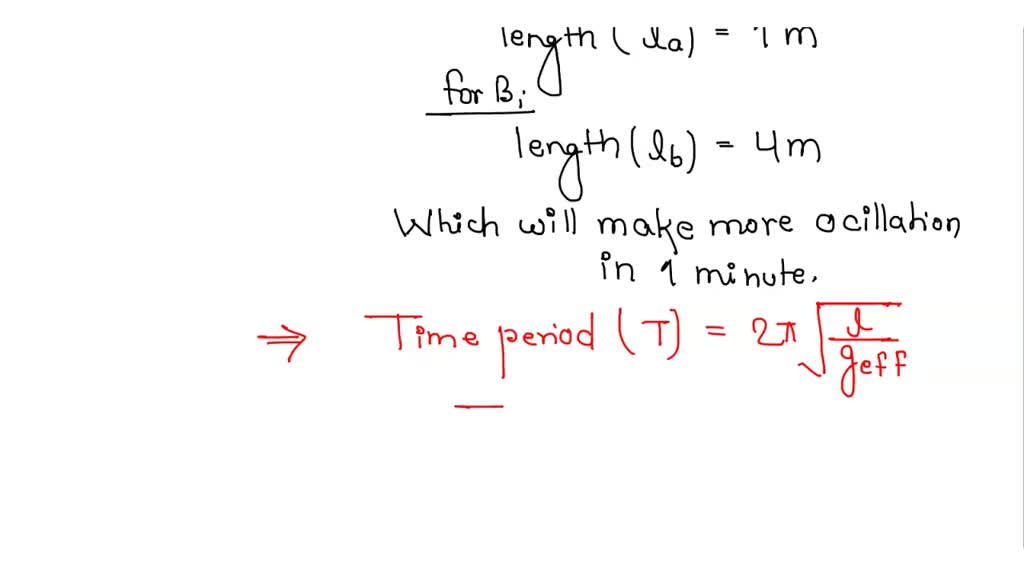 length (la) = 1 m
for B;
length (lb) = 4m
Which will make more ocillation
in 1 minute.
⇒ Time period (T) = 2π √(l/geff)